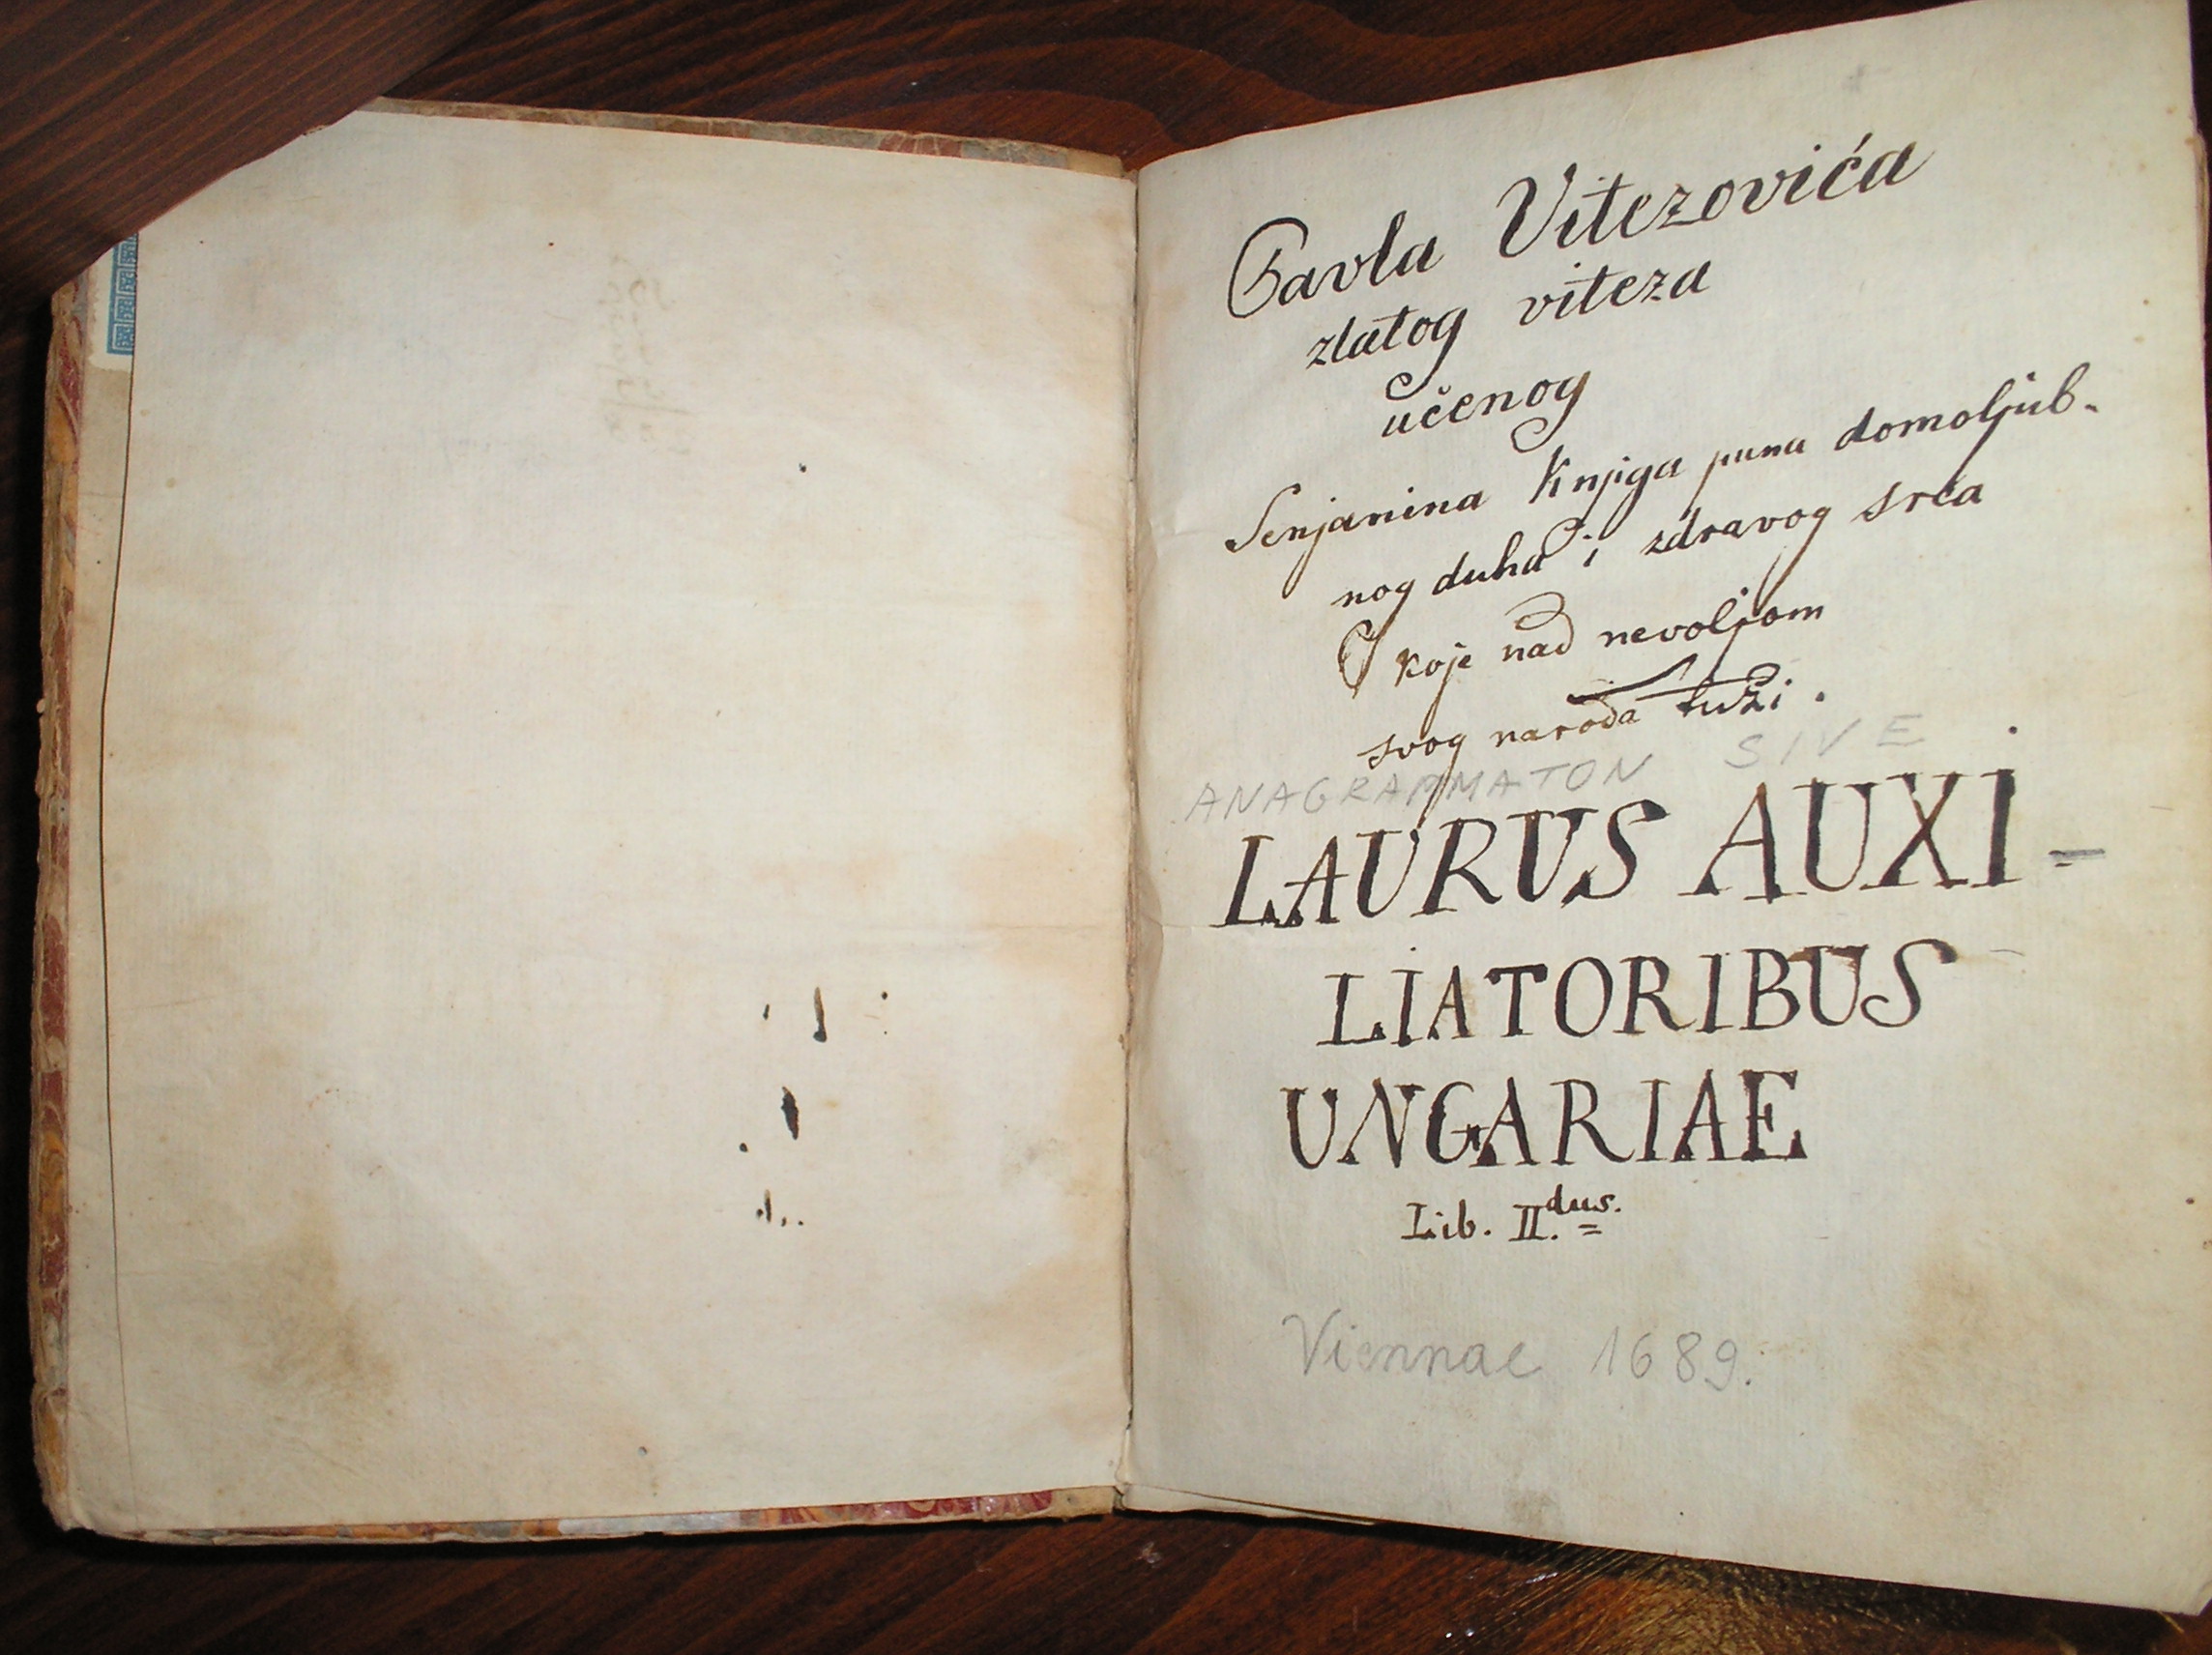 Pavla Vitezovića
zlatog viteza
učenog
Senjanina Knjiga puna domoljub-
nog duha i zdravog srca
koje nad nevoljom
svog naroda tuži.
ANAGRAMMATON SIVE
LAURUS AUXI-
LIATORIBUS
UNGARIAE
Lib. II.dus.
Viennae 1689.